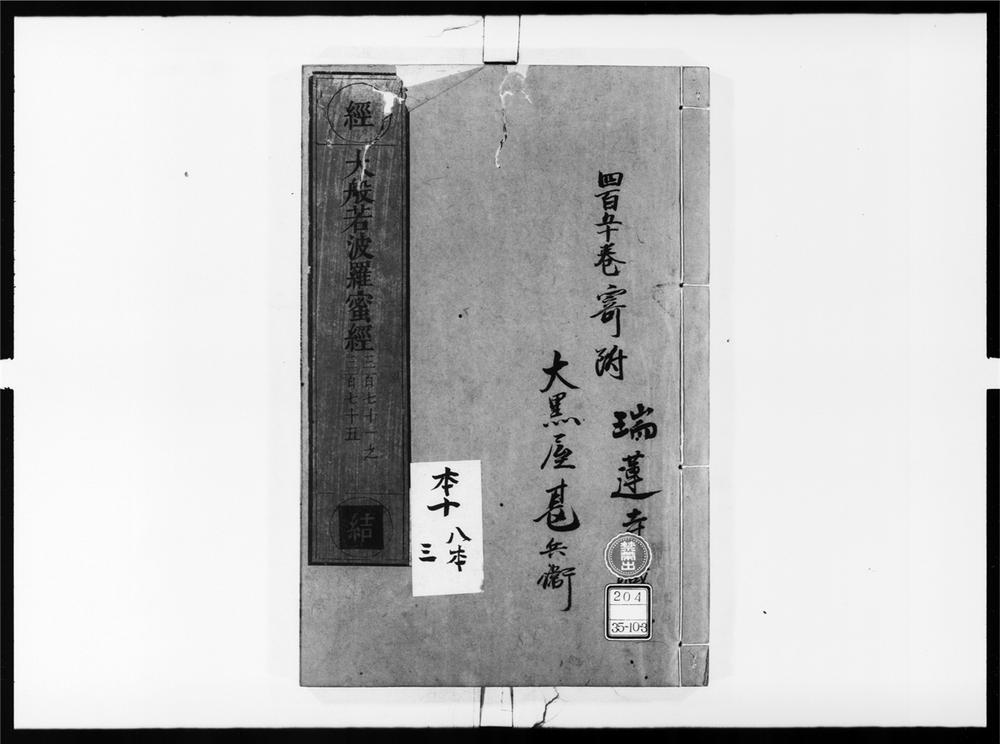 四百五十巻寄附
瑞蓮寺
大黒屋甚兵衛
禁帶出
204
35-10-3
本十
八本
三
經
大般若波羅蜜經
三百七十一之
三百七十五
結